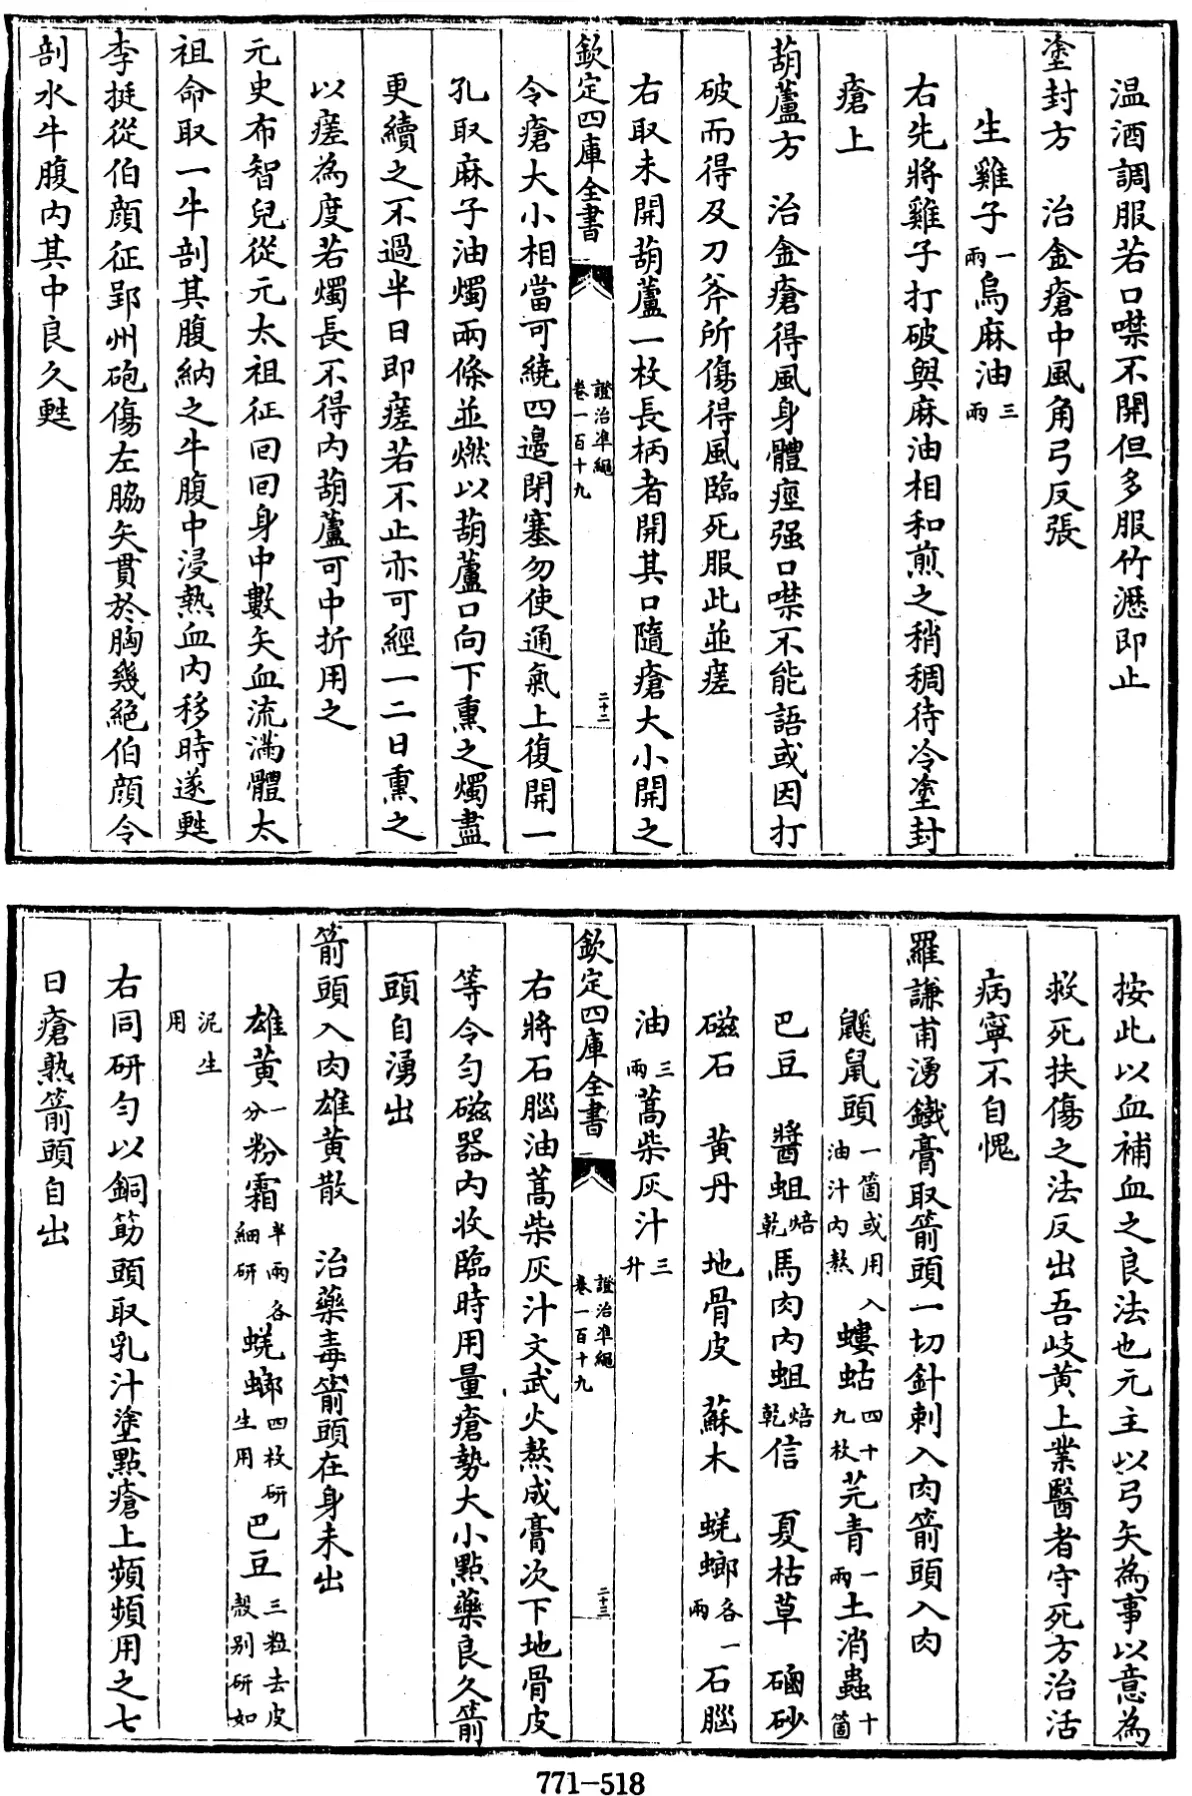 温酒調服若口噤不開但多服竹瀝即止
塗封方　治金瘡中風角弓反張
生雞子一兩烏麻油三兩
右先將雞子打破與麻油相和煎之稍稠待冷塗封
瘡上
葫蘆方　治金瘡得風身體痙强口噤不能語或因打
破而得及刀斧所傷得風臨死服此並瘥
右取未開葫蘆一枚長柄者開其口隨瘡大小開之
欽定四庫全書　證治凖繩卷一百十九　二十二
令瘡大小相當可繞四邊閉塞勿使通氣上復開一
孔取麻子油燭兩條並燃以葫蘆口向下熏之燭盡
更續之不過半日即瘥若不止亦可經一二日熏之
以瘥為度若燭長不得内葫蘆可中折用之
元史布智兒從元太祖征回回身中數矢血流滿體太
祖命取一牛剖其腹納之牛腹中浸熱血内移時遂甦
李挺從伯顔征郢州砲傷左脇矢貫於胸幾絶伯顔令
剖水牛腹内其中良久甦
按此以血補血之良法也元主以弓矢為事以意為
救死扶傷之法反出吾岐黄上業醫者守死方治活
病寧不自愧
羅謙甫湧鐵膏取箭頭一切針刺入肉箭頭入肉
鼴鼠頭一箇或用入油汁内熬螻蛄四十九枚芫青一兩土消蟲十箇
巴豆　醬蛆焙乾馬肉内蛆焙乾信　夏枯草　硇砂
磁石　黄丹　地骨皮　蘇木　蜣蜋各一兩石腦
油三兩蒿柴灰汁三升
欽定四庫全書　證治凖繩卷一百十九　二十三
右將石腦油蒿柴灰汁文武火熬成膏次下地骨皮
等令勻磁器内收臨時用量瘡勢大小點藥良久箭
頭自湧出
箭頭入肉雄黄散　治藥毒箭頭在身未出
雄黄一分粉霜半兩各細研蜣蜋四枚研生用巴豆三粒去皮殼别研如
泥生用
右同研勻以銅筯頭取乳汁塗點瘡上頻頻用之七
日瘡熟箭頭自出
771-518